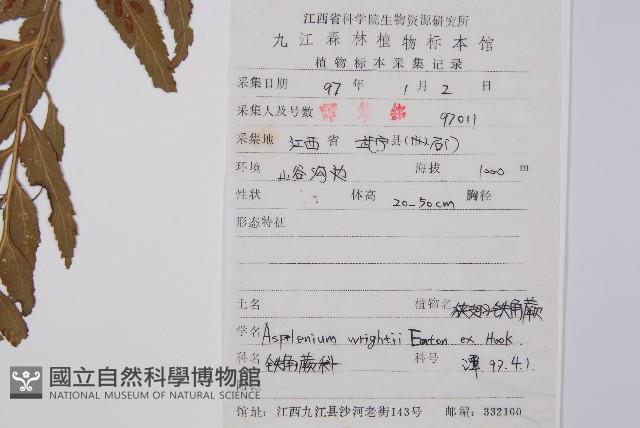 江西省科学院生物资源研究所
九江森林植物标本馆
植物标本采集记录
采集日期 97 年 1 月 2 日
采集人及号数 97011
采集地 江西 省 武宁 县(市)
环境 山谷沟边 海拔 1000 m
性状 体高 20-50cm 胸径
形态特征
土名 植物名 狭翅铁角蕨
学名 Asplenium wrightii Eaton ex Hook.
科名 铁角蕨科 科号 谭 97.4.1.
國立自然科學博物館
NATIONAL MUSEUM OF NATURAL SCIENCE
馆址: 江西九江县沙河老街143号 邮编: 332100